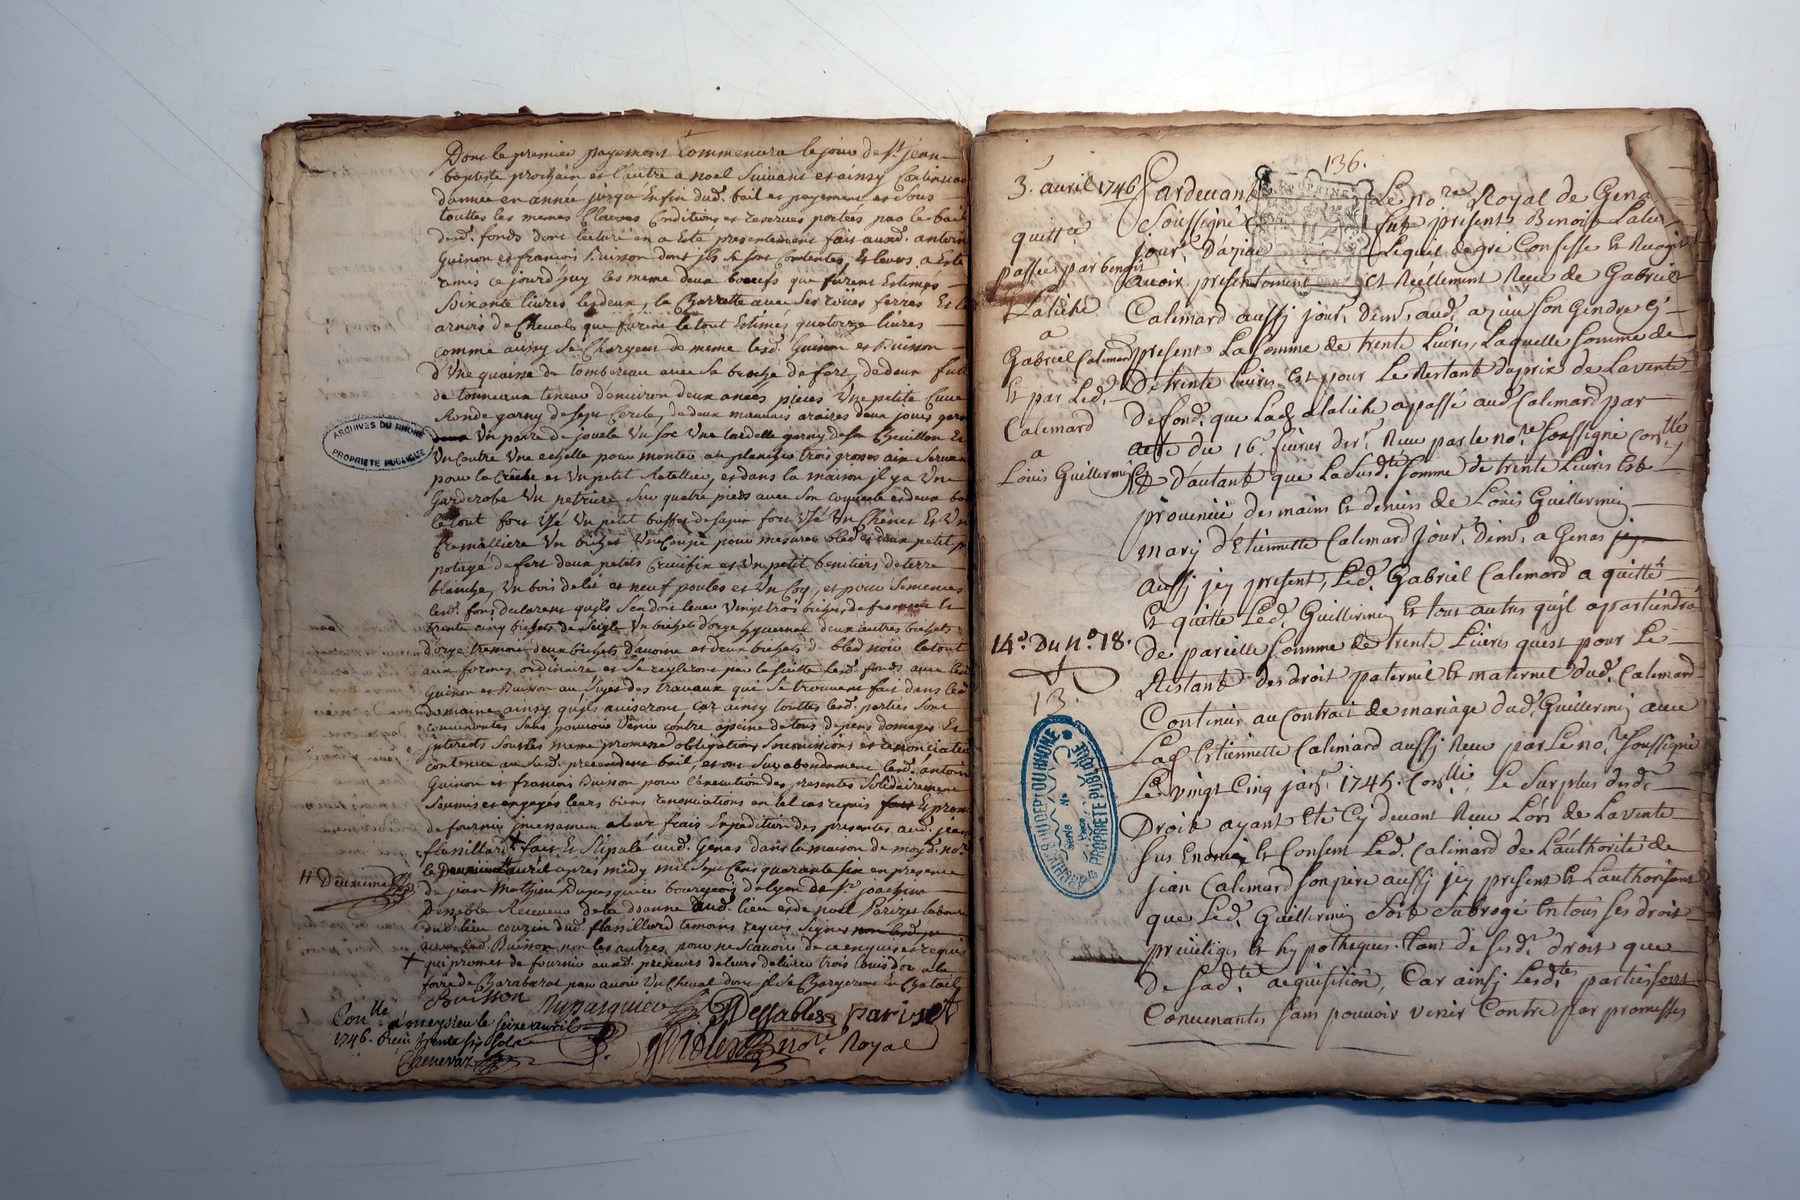 Dont le premier payement Commencera le jour de St. jean
baptiste prochain et l'autre a noel Suivant et ainsy Continuer
d'année en année jusqu'a Enfin dud. bail et payement et Sous
touttes les memes Clauses Conditions et reserves portées par le bail
desd. fonds dont lecture en a Esté presentement fait auxd. antoine
Guinon et francois Buisson dont jls se sont Contentes, Et leurs a Esté
remis ce jourd'huy les meme deux boeufs que furent Estimés
Soixante livres lesdeux, la Charrette avec Ses roües ferrés Et le
arnois de Cheval que furent le tout Estimés quatorze livres
comme aussy Se Chargent de meme lesd. Guinon et Buisson
d'Une quaisse de tombereau avec Sa
de tonneaux teneur d'environ deux anées pieces Une petite Cuve
Ronde garny de sept Cercles, de deux mauvais araires deux joues
Un paire de Un soc Une garny de Sa Cheuillon Et
Un Coutre Une echelle pour monter au plancher trois grosses aix Servant
pour la Crêche et Un petit Ratellier, et dans la maison jl y a Une
Garderobe Un petriere Sur quatre pieds avec Son Couvercle et deux
le tout fort Usé Un petit buffet de Sapin fort Usé Un Chenet Et Un
Cremalliere Un bichet Une Coupe pour mesurer bled et deux petit
potage de fert deux petits Crucifix et Un petit benitier de terre
blanche, Un bois de lit et neuf poules et Un Coq, et pour Semences
lesd. fonds declarent qu'jls Sen doit lever Vingt trois bichets de froment le
trente cinq bichets de Seigle Un bichet d'orge hyvernal deux autres bichets
d'orge tremois deux bichets d'avoine et deux bichets de bled noir le tout
aux formes ordinaire et se regleront par la Suitte lesd. fonds avec lesd.
Guinon et Buisson au Sujet des travaux qui Se trouvent fait dans led.
domaine ainsy qu'jls aviseront car ainsy touttes lesd. parties Sont
convenantes Sans pouvoir Venir contre a peine de tous depens domages Et
interets Sous les meme promesse obligations Soumissions et renonciation
contenu au Susd. precendent bail, et ont Surabondament lesd. antoine
Guinon et francois Buisson pour l'execution des presentes Solidairement
Soumis et engagés leurs biens renonciations en tel cas requis Et promis
de fournir jncessament a leur frais Expedition des presentes aud. jean
flavillard + fait Et Stipulé aud. Genas dans la maison de moy d. nore.
le apres midy mil Sept Cens quarante Six en presence
de jean Mathieu Duparquier bourgeois de lyon de Sr. joachim
Dessable Receveur de la doanne aud. lieu et de noel Parizet laboureur
dud. lieu couzin dud. flavillard temoins requis Signes
avec led. Buisson non les autres pour ne Scavoir de ce enquis et requis
+ qui promet de fournir auxd. preneurs de leurs delivrer trois Louis d'or a la
foire de Charabarat pour avoir Un Cheval dont jls se Chargeront en Chatail
H Deuxieme
Buisson Duparquier Dessables Parizet
Conlle. a meyzieu le Seize avril
1746. Recu trente six sols
Chenevaz
nore. Royal
ARCHIVES DU RHONE
PROPRIETE PUBLIQUE
136.
3. avril 1746
quittce.
passée par benoit
Laliche
a
Gabriel Calemard
Et par Led.
Calemard
a
Louis Guillermin
14e. Du No. 18.
13.
ARCHIVES DU DEPT DU RHONE
Série
No
PROPRIETE PUBLIQUE
DAUPHINE
Pardevant Le nore. Royal de Genas
Soussigné fut present Benoit Laliche
jour. D'azieu Lequel de gré Confesse Et Recognoit
avoir presentement et Réellement Reçu de Gabriel
Calemard aussy jour. dem. aud. azieu Son Gendre Cy
present La Somme de trente Livres, Laquelle Somme de
De trente livres Est pour Le Restant du prix de La vente
De fond. que Lad. Laliche a passé aud. Calemard par
acte du 16e. fevrier der. Reçu par le nore. Soussigné Conlle.
Et D'autant que La Susdte. Somme de trente Livres Est
provenüe des mains Et deniers de Loüis Guillermin
mary d'Etiennette Calemard Jour. dem. a Genas
aussy jcy present, Led. Gabriel Calemard a quitté
Et quitte Led. Guillermin Et tous autres qu'jl apartiendra
de pareille Somme de trente Livres qu'est pour Le
Restant des droit paternel Et maternel dud. Calemard
Contenus au Contrait de mariage dud. Guillermin avec
Lad. Estiennette Calemard aussy Reçu par Le nore. Soussigné
Le vingt Cinq janr. 1745. Conlle. Le Surplus desd.
Droit ayant Eté Cy devant Reçu Lors de La vente
Sus Enoncé Et Consent Led. Calemard de L'authorité de
jean Calemard Son pere aussy jcy present Et L'authorisant
que Led. Guillermin Soit Subrogé En tous Ses droit
privileges Et hypotheques tant de Sesd. droit que
de Sadte. acquisition, Car ainsy Lesdtes. parties Sont
Convenantes Sans pouvoir venir Contre par promesses